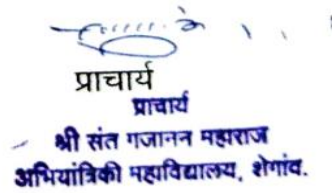 प्राचार्य
प्राचार्य
श्री संत गजानन महाराज
अभियांत्रिकी महाविद्यालय, शेगांव.